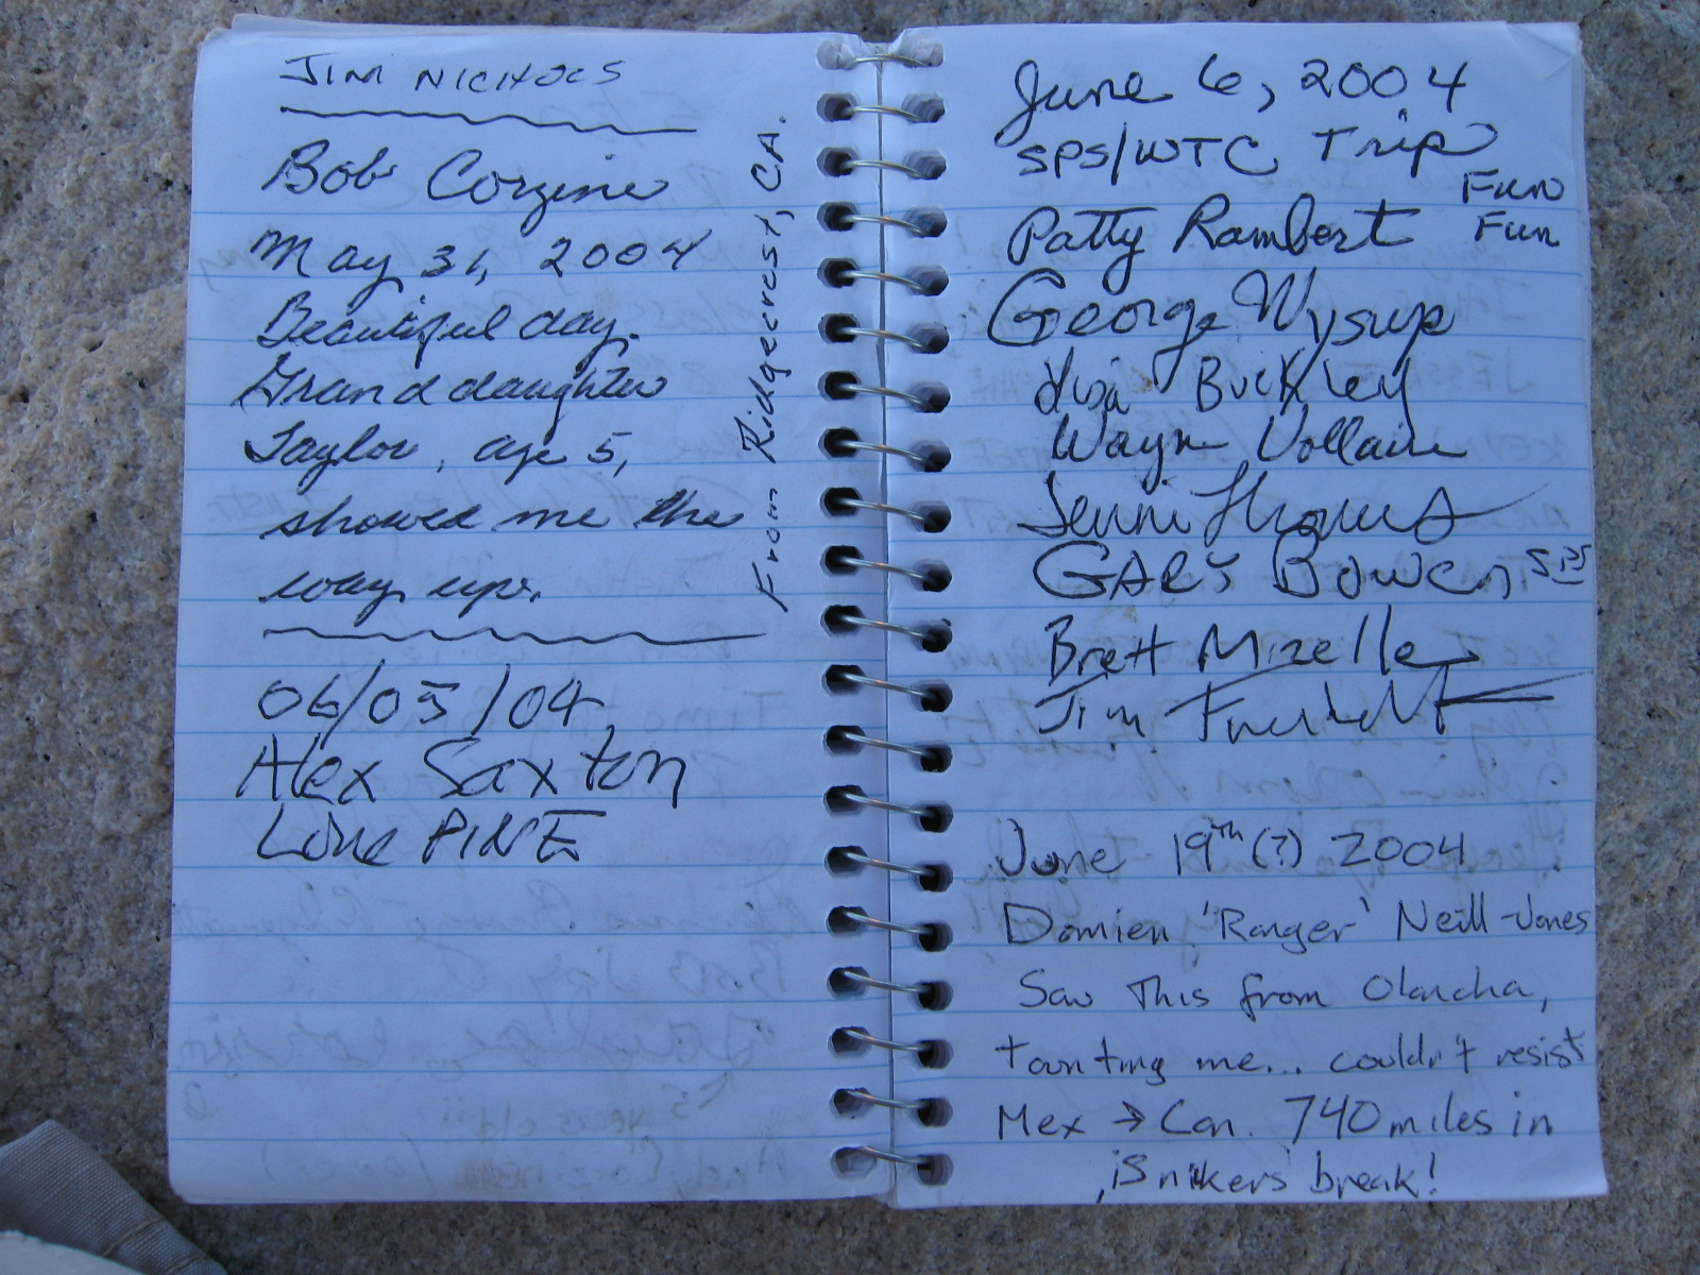 JIM NICHOLS
Bob Corzine
May 31, 2004
Beautiful day.
Grand daughter
Taylor, age 5,
showed me the
way up.
From Ridgecrest, CA.
06/05/04
Alex Saxton
Lone PINE
June 6, 2004
SPS/WTC Trip
Fun
Fun
Patty Rambert
George Wysup
Lisa Buckley
Wayne Vollaire
Jenni Thomas
GARY Bowen SPS
Brett Mizelle
Jim
June 19th (?) 2004
Damien 'Ranger' Neill-Jones
Saw This from Olancha,
taunting me... couldn't resist
Mex → Can. 740 miles in
¡Snikers break!